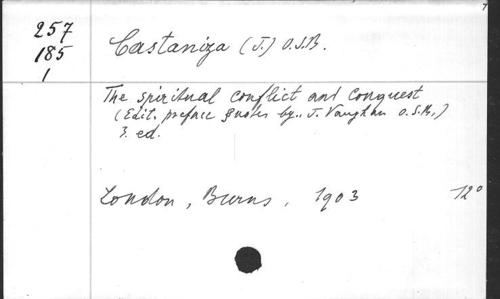 257
185
1
Castaniza (J.) O.S.B.
The spiritual conflict and Conquest
(Edit. preface & notes by.. J. Vaughan O.S.B.)
3. ed.
London, Burns, 1903 12°